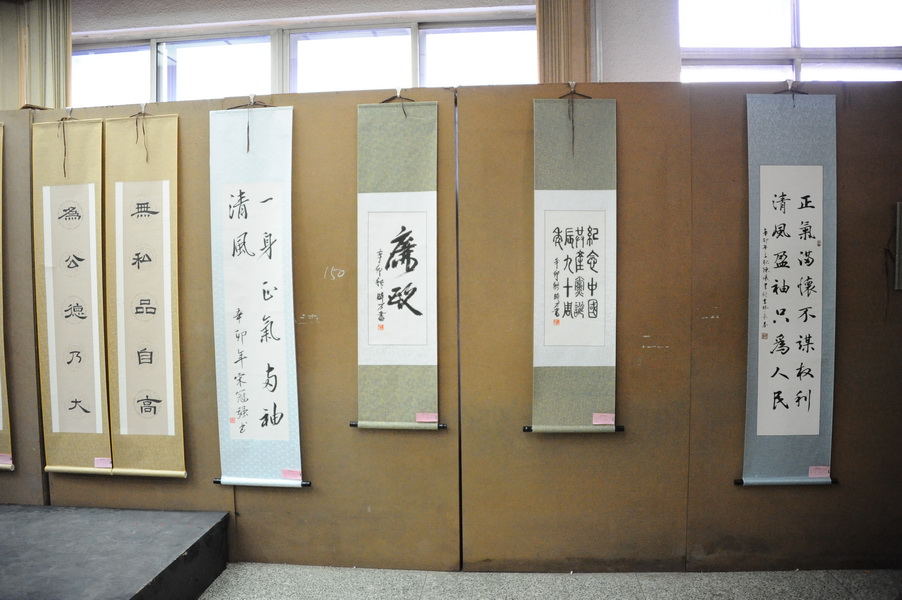 無私品自高
為公德乃大
一身正氣両袖
清風
辛卯年宋
150
廉政
辛卯秋時才書
紀念中國
共產黨誕
辰九十周
年
辛卯秋時才書
正氣滿懷不謀权利
清風盈袖只為人民